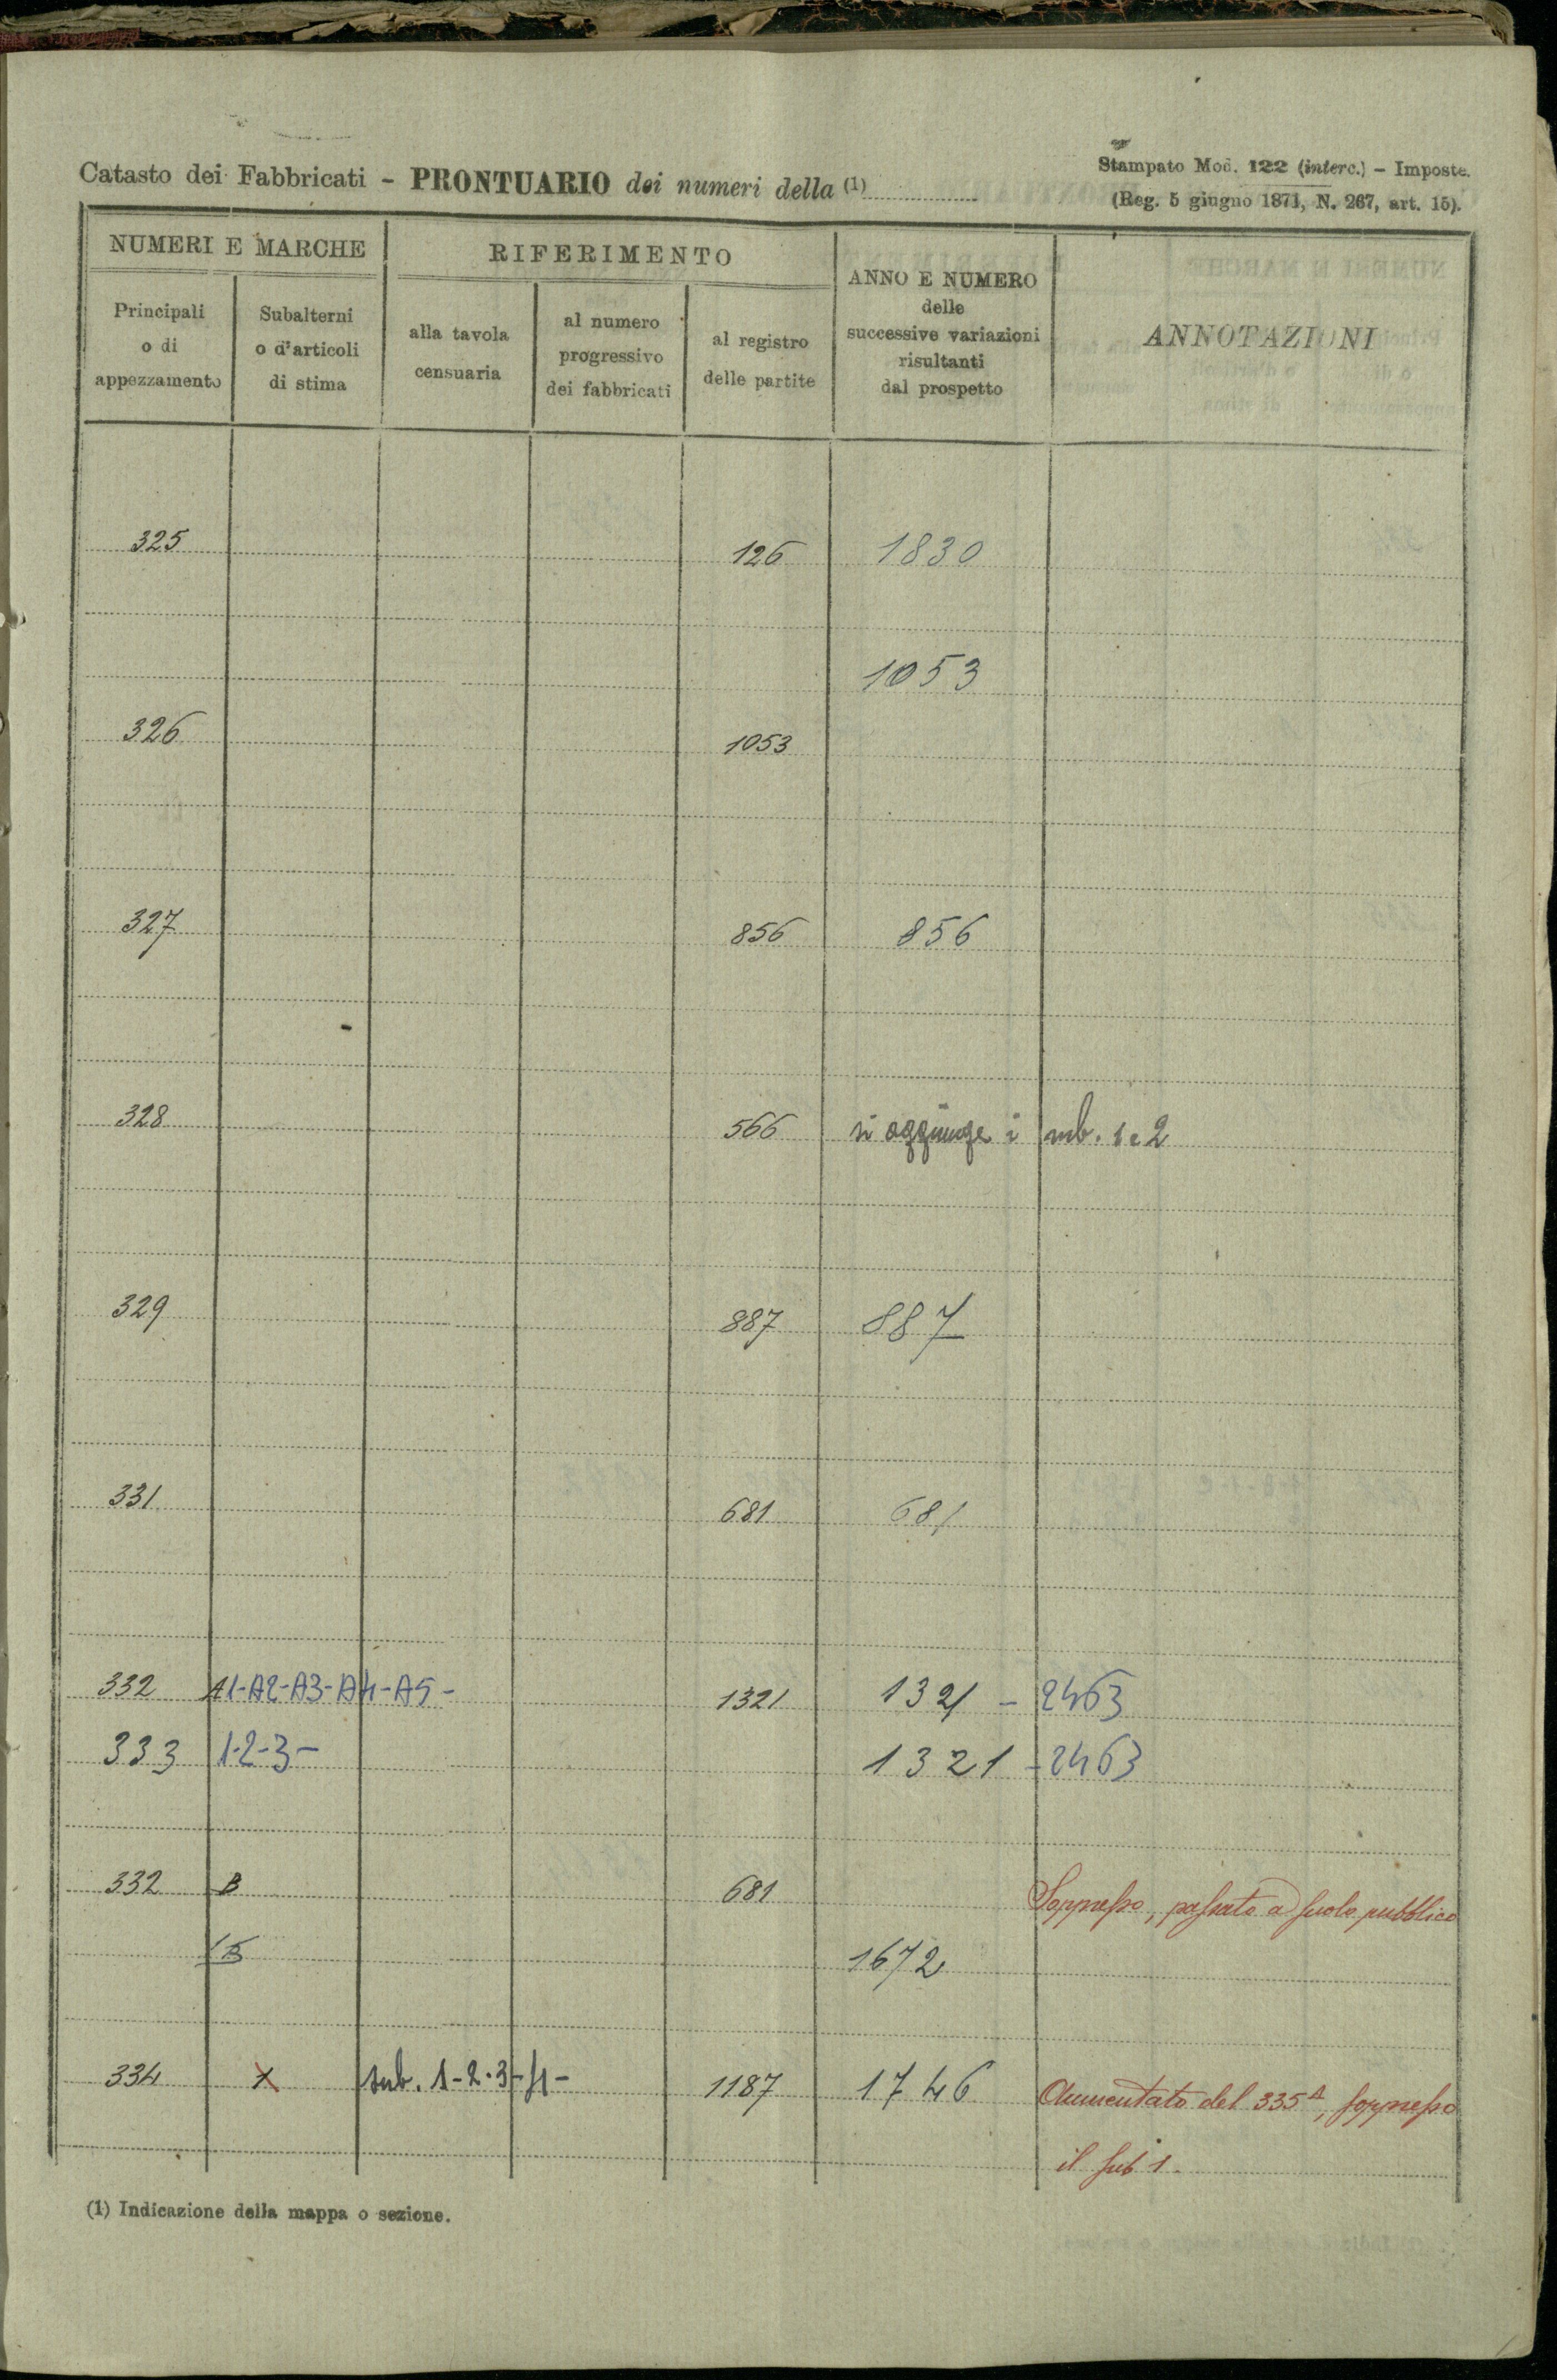 Catasto dei Fabbricati – PRONTUARIO dei numeri della (1)
Stampato Mod. 122 (interc.) – Imposte.
(Reg. 5 giugno 1871, N. 267, art. 15).
NUMERI E MARCHE
RIFERIMENTO
ANNO E NUMERO
delle
successive variazioni
risultanti
dal prospetto
ANNOTAZIONI
Principali
o di
appezzamento
Subalterni
o d'articoli
di stima
alla tavola
censuaria
al numero
progressivo
dei fabbricati
al registro
delle partite
325 126 1830
1053
326 1053
327 856 856
328 566 si aggiunge i sub. 1 e 2
329 887 887
331 681 681
332 A1-A2-A3-A4-A5- 1321 1321 - 2463
333 1-2-3- 1321 - 2463
332 B 681 Soppresso, passato a suolo pubblico
B 1672
334 1 sub. 1-2-3-4- 1187 1746 Aumentato del 335 A, soppresso
il sub 1.
(1) Indicazione della mappa o sezione.